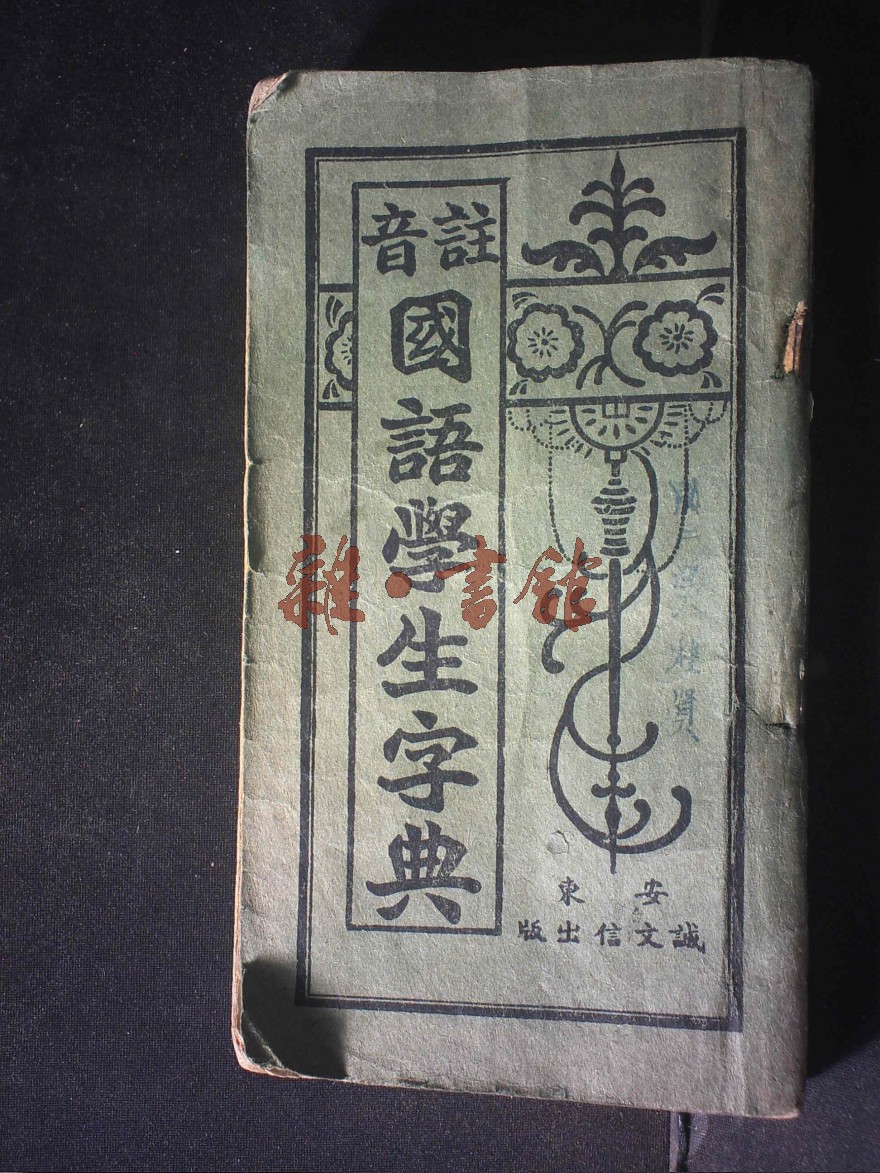 註音
國語學生字典
安東
誠文信出版
雜·書館
桂貞